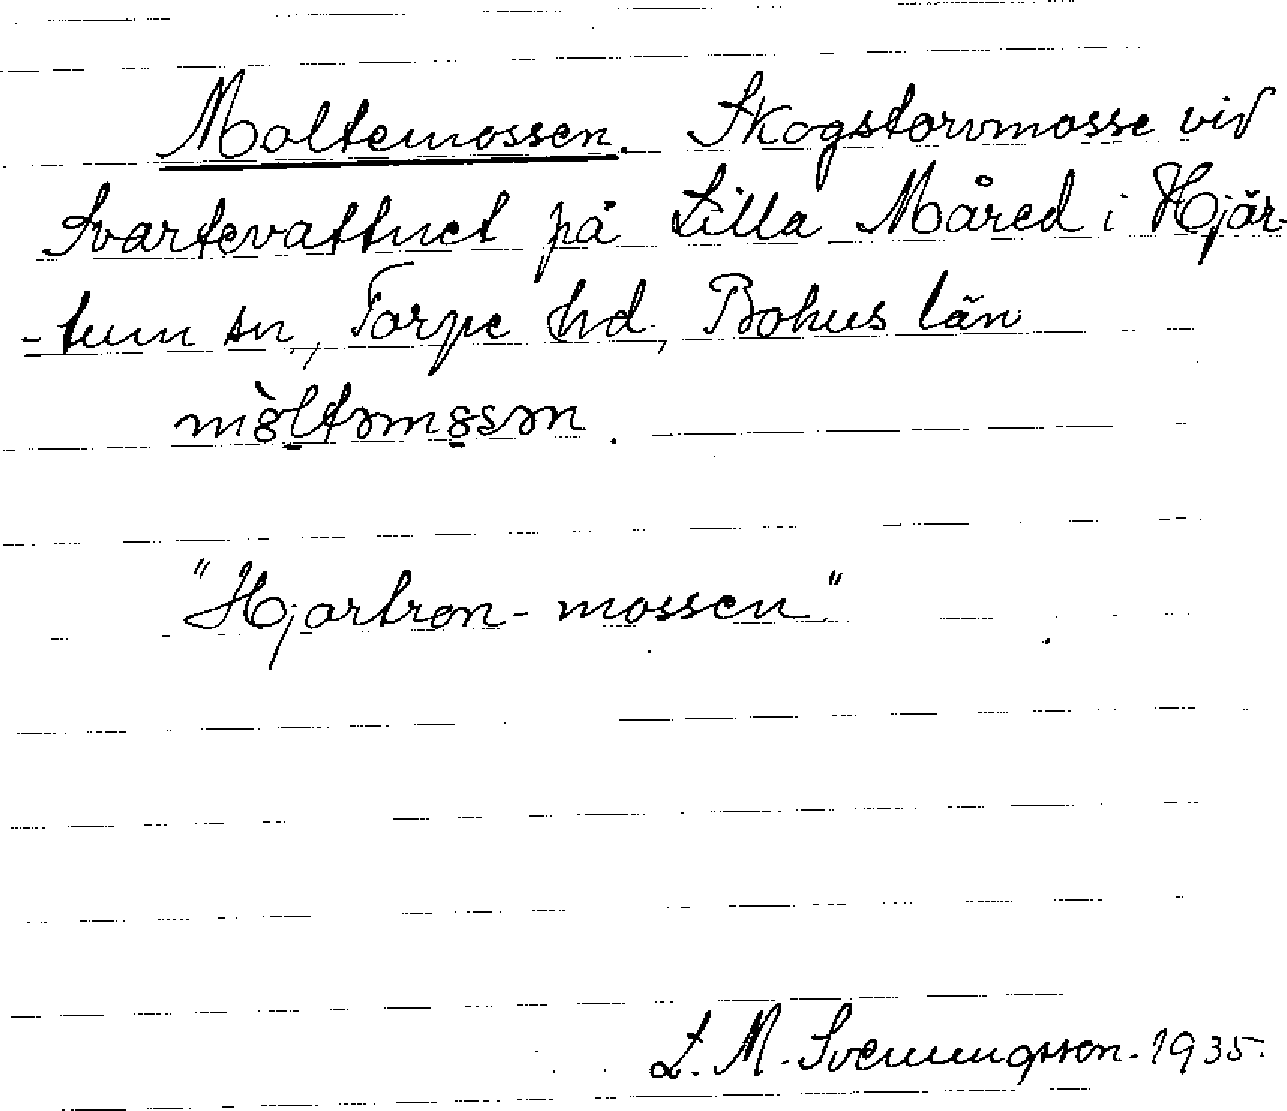 Moltemossen. Skogstorvmosse vid
Svartevattnet på Lilla Måred i Hjär-
-tum sn, Torpe hd, Bohus län
mòltəmosən.
"Hjortron-mossen"
L. M. Svenungsson. 1935.